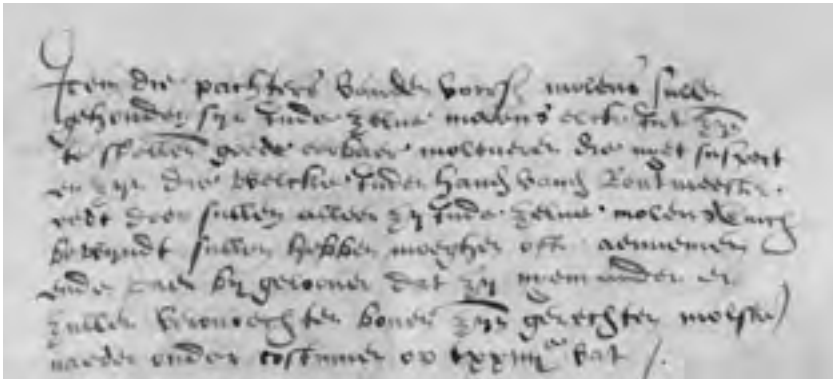 Item die pachters vanden vorss molens sullen
gehouden syn inde zelve molens elck int zyn
te stellen goede eerbaer moleneren die niet suspect
en zyn die welcke inder handt vand Rentmeester
eedt doen sullen alleer zy inde zelve molens
bewyndt sullen hebben moeghen oft aennemen
ende daer by geloven dat zy niemanden en
zullen veronrechten boven zyn gerechten molster
naeder ouder costumen op xxiiii vat